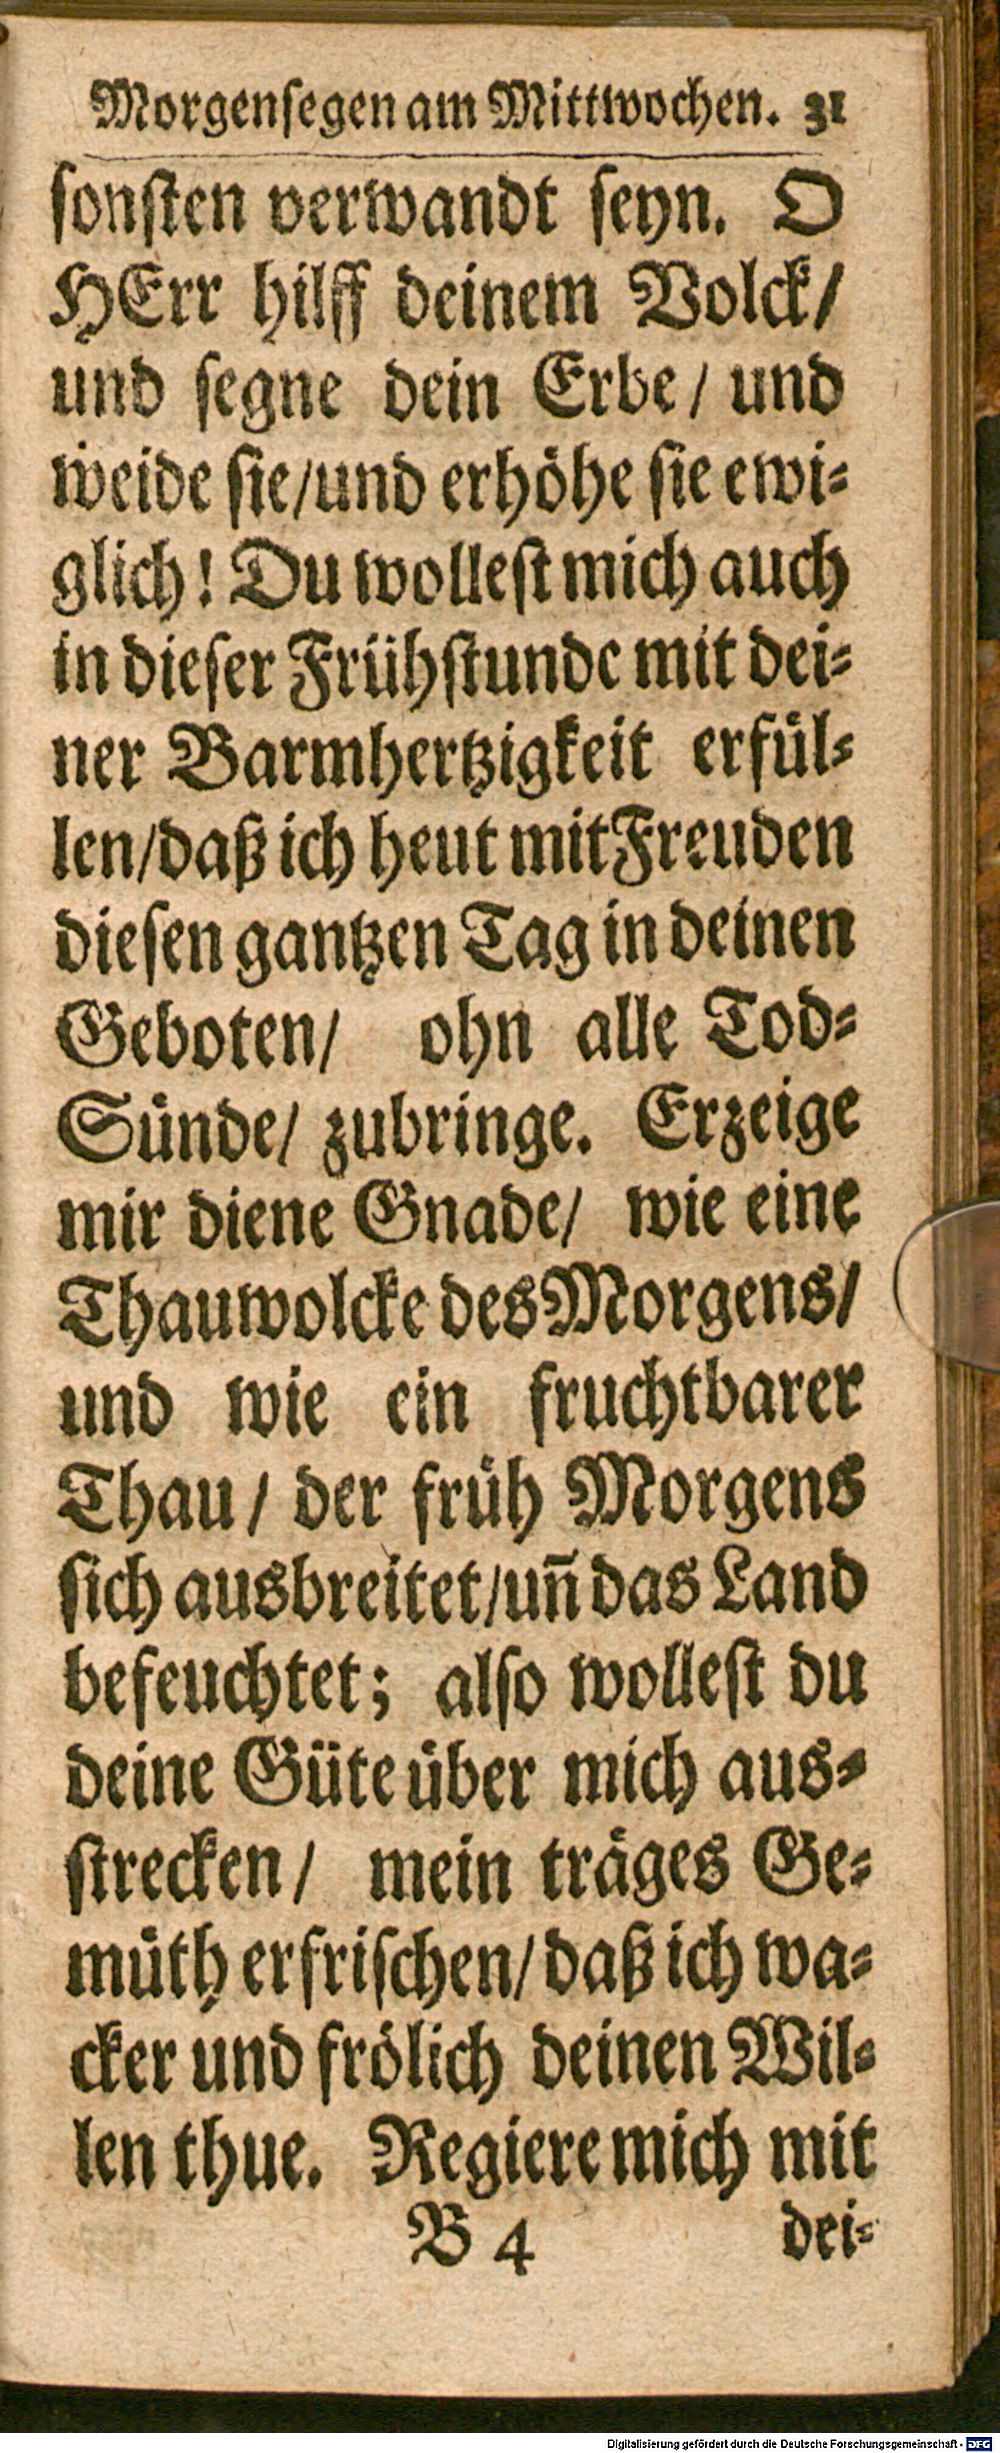 Morgensegen am Mittwochen. 31
sonsten verwandt seyn. O
HErr hilff deinem Volck/
und segne dein Erbe/ und
weide sie/und erhöhe sie ewi-
glich! Du wollest mich auch
in dieser Frühstunde mit dei-
ner Barmhertzigkeit erfül-
len/daß ich heut mit Freuden
diesen gantzen Tag in deinen
Geboten/ ohn alle Tod-
Sünde/ zubringe. Erzeige
mir diene Gnade/ wie eine
Thauwolcke des Morgens/
und wie ein fruchtbarer
Thau/ der früh Morgens
sich ausbreitet/uñ das Land
befeuchtet; also wollest du
deine Güte über mich aus-
strecken/ mein träges Ge-
müth erfrischen/daß ich wa-
cker und frölich deinen Wil-
len thue. Regiere mich mit
B 4 dei-
Digitalisierung gefördert durch die Deutsche Forschungsgemeinschaft - DFG